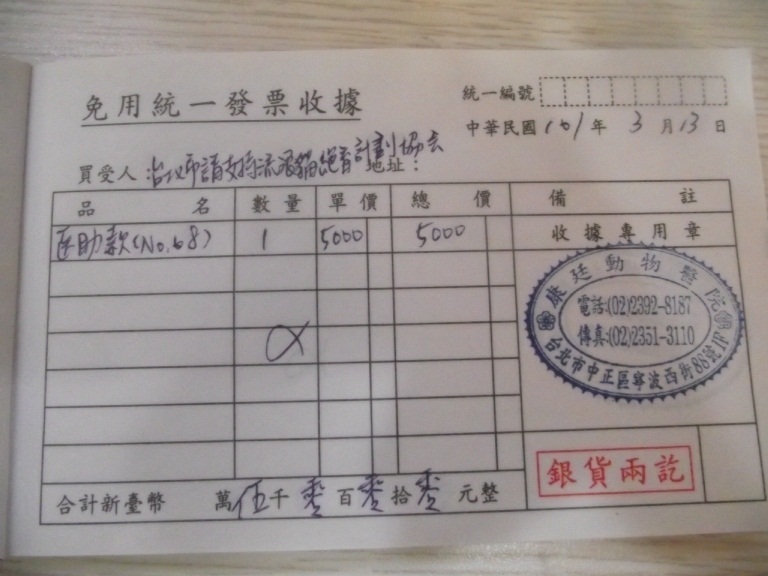 免用統一發票收據
統一編號
中華民國101年3月13日
買受人：台北市請支持流浪貓絕育計劃協會 地址：
品名 數量 單價 總價 備註
醫助款(No.68) 1 5000 5000 收據專用章
康廷動物醫院
電話:(02)2392-8187
傳真:(02)2351-3110
台北市中正區寧波西街88號1F
銀貨兩訖
合計新臺幣 萬伍千零百零拾零元整